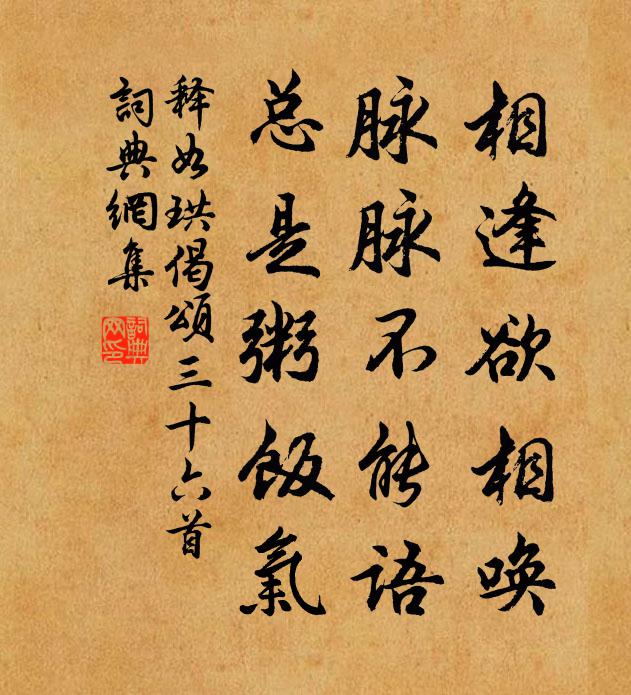 相逢欲相唤
脉脉不能语
总是粥饭氣
释如珙偈頌三十六首
詞典網集
詞典
网印